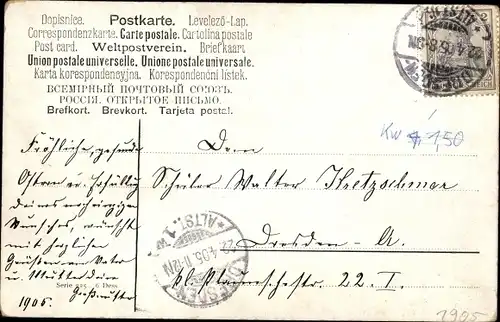 Dopisnice. Postkarte. Levelező-Lap.
Correspondenzkarte. Carte postale. Cartolina postale
Post card. Weltpostverein. Briefkaart
Union postale universelle. Unione postale universale.
Karta korespondencyjna. Korespondenční lístek.
ВСЕМІРНЫЙ ПОЧТОВЫЙ СОЮЗЪ.
РОССІЯ. ОТКРЫТОЕ ПИСЬМО.
Brefkort. Brevkort. Tarjeta postal.
KW 1,50
Fröhliche, gesunde
Ostern u. Erfüllung
deines
Wunsches, wünscht
mit herzlichen
Grüßen an Vater
u. Mutter deine
Großmutter
1905.
Dem
Schüler Walter Kretzschmar
Dresden-A.
22. I.
DRESDEN
*ALTST. 1.w
22.4.05. 11-12N
Serie 6 Dess
1905